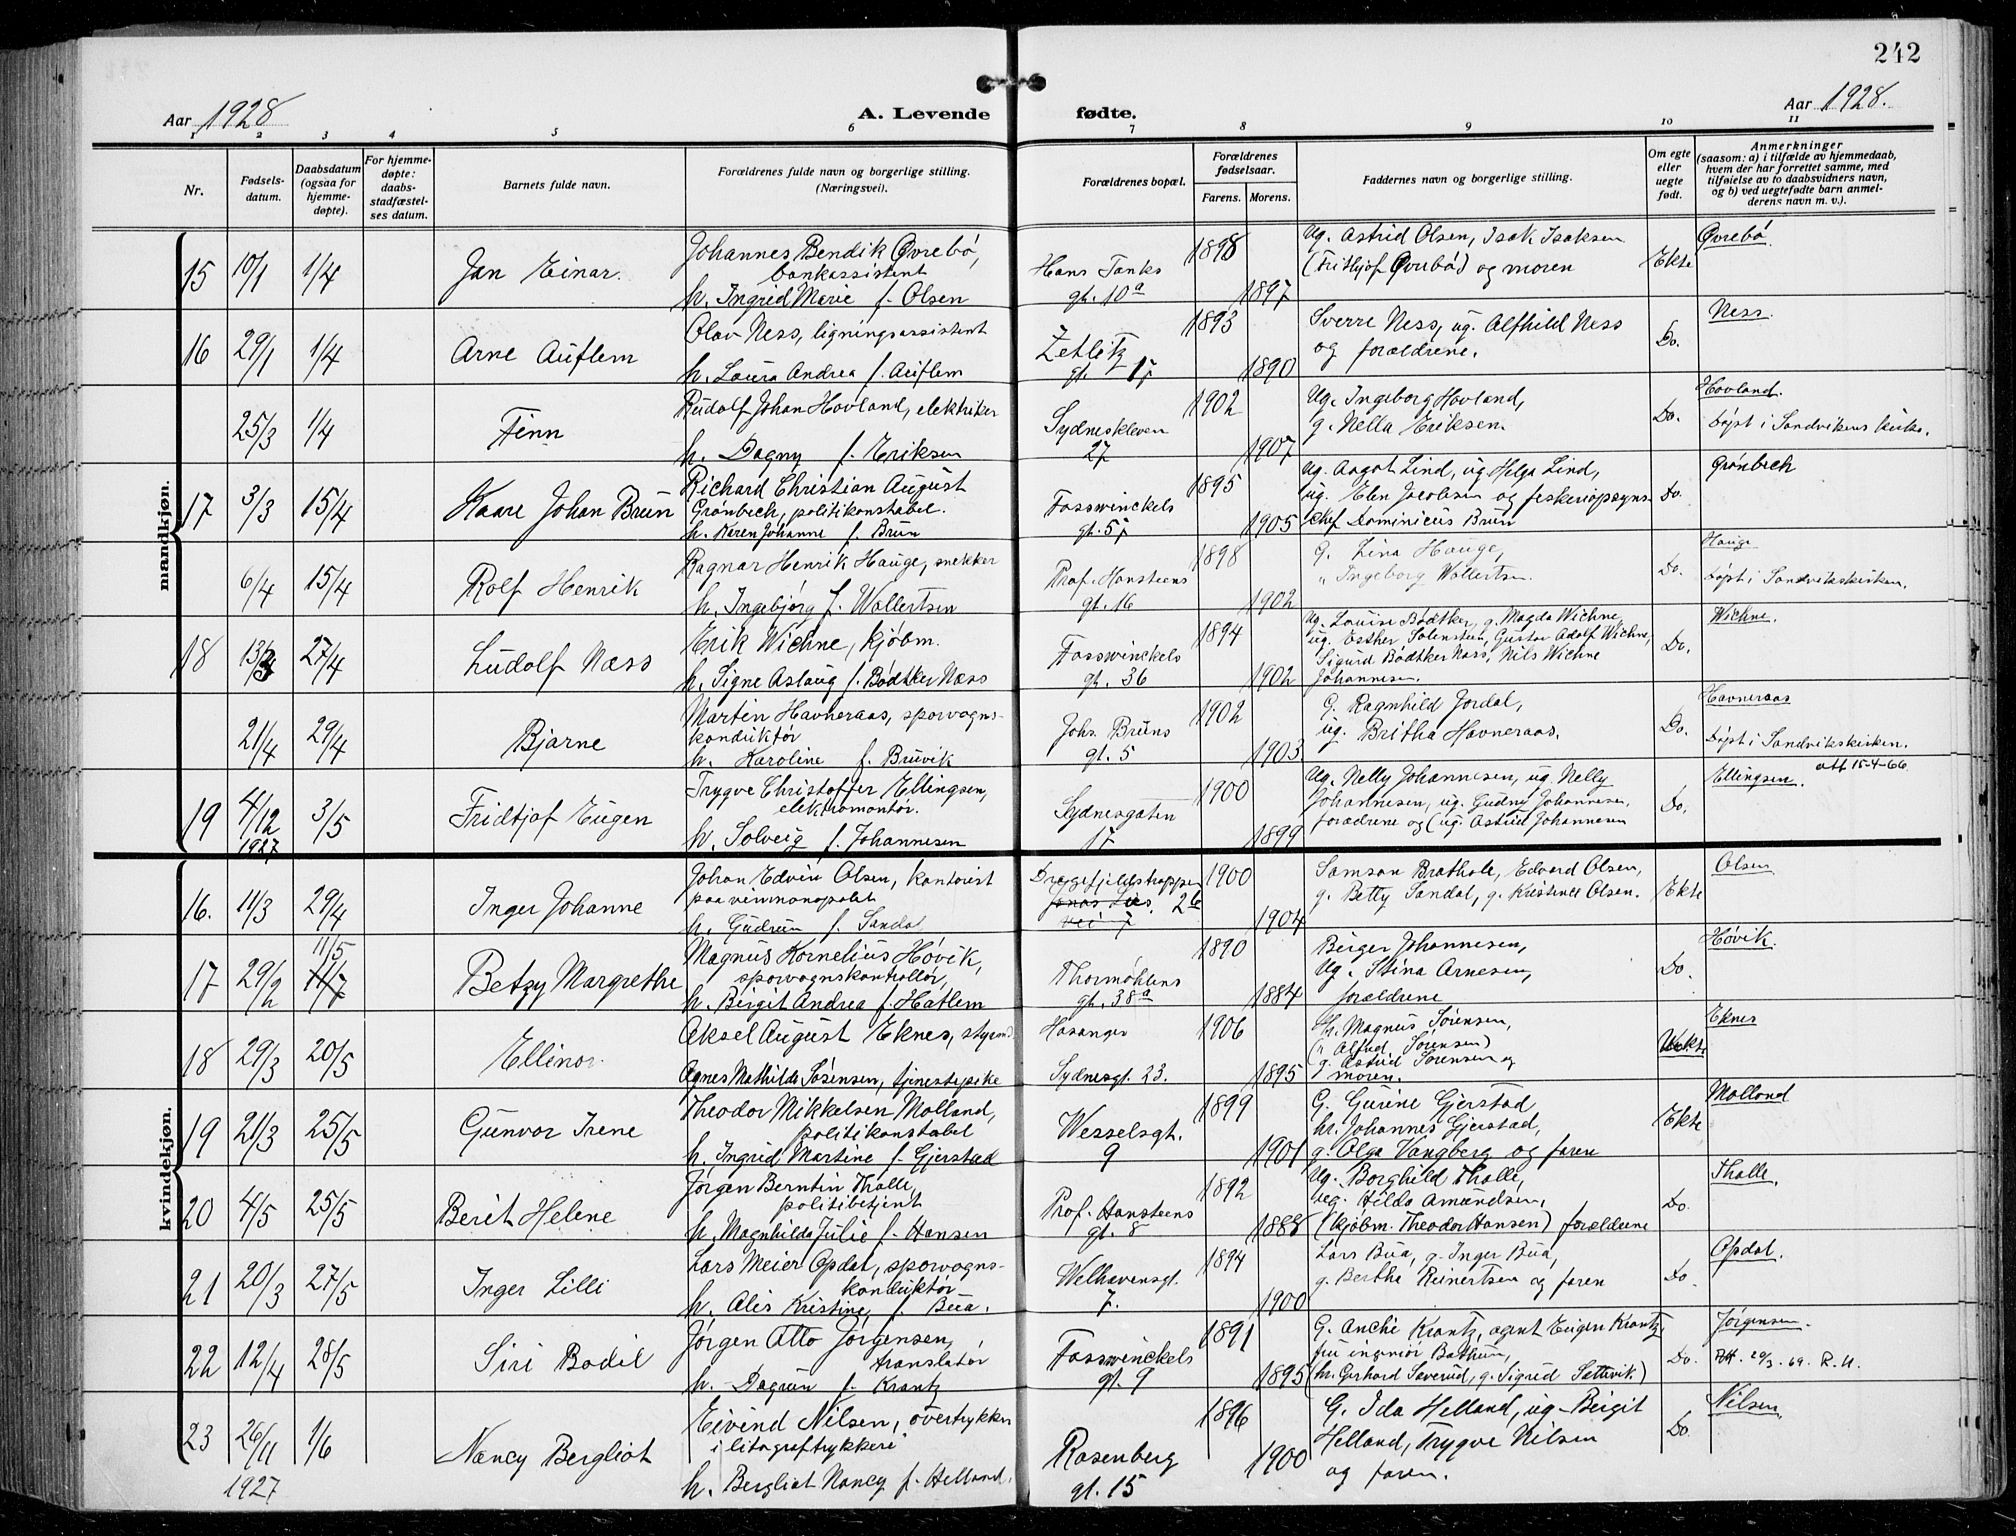 242
Aar 1928
A. Levende fødte.
Aar 1928.
1 2 3 4 5 6 7 8 9 10 11
Nr.
Fødsels-
datum.
Daabsdatum
(ogsaa for
hjemme-
døpte).
For hjemme-
døpte:
daabs-
stadfæstel-
ses datum.
Barnets fulde navn.
Forældrenes fulde navn og borgerlige stilling.
(Næringsvei).
Forældrenes bopæl.
Forældrenes
fødselsaar.
Farens. Morens.
Faddernes navn og borgerlige stilling.
Om egte
eller
uegte
født.
Anmerkninger
(saasom: a) i tilfælde av hjemmedaab,
hvem der har forrettet samme, med
tilføielse av to daabsvidners navn,
og b) ved uegtefødte barn anmel-
derens navn m. v.).
mandkjøn.
15 10/1 1/4 Jan Einar.
Johannes Bendik Øvrebø,
bankassistent
h. Ingrid Marie f. Olsen
Hans Tanks
gt. 10a
1898
1897
Ug. Astrid Olsen, Isak Isaksen
(Fritkjof Øvrebø) og moren
Ekte
Øvrebø
16 29/1 1/4 Arne Auflem
Olav Ness, ligningsassistent
h. Laura Andrea f. Auflem
Zetlitz
gt. 17
1893
1890
Sverre Ness, ug. Alfhild Ness
og forældrene.
Do.
Ness.
25/3 1/4 Finn
Rudolf Johan Hovland, elektriker
h. Dagny f. Eriksen
Sydneskleven
27
1902
1907
Ug. Ingeborg Hovland,
g. Nella Eriksen.
Do.
Hovland.
Døpt i Sandvikens kirke.
17 3/3 15/4 Kaare Johan Brun
Richard Christian August
Grønbech, politikonstabel.
h. Karen Johanne f. Brun
Fosswinckels
gt. 57
1895
1905
ug. Aagot Lind, ug Helga Lind,
ug. Elen Jacobsen og fiskeriopsyns-
chef Dominicus Brun
Do.
Grønbech
6/4 15/4 Rolf Henrik
Ragnar Henrik Hauge, snekker
h. Ingebjørg f. Wollertsen
Prof. Hansteens
gt. 16
1898
1902
G. Lina Hauge,
" Ingeborg Wollertsen.
Do.
Hauge
Døpt i Sandvikskirken.
18 13/3 27/4 Ludolf Næss
Erik Wichne, kjøbm.
h. Signe Aslaug f. Bødtker Næss
Fosswinckels
gt. 36
1894
1902
Ug. Louise Bødtker, g. Magda Wichne,
ug. Esther Solensten, Gustav Adolf Wichne,
Sigurd Bødtker Næss, Nils Wichne
Johannesen.
Do.
Wichne.
21/4 29/4 Bjarne
Martin Havneraas, sporvogns-
konduktør
h. Karoline f. Bruvik
Johs. Bruns
gt. 5
1902
1903
G. Ragnhild Jordal,
ug. Britha Havneraas.
Do.
Havneraas
Døpt i Sandvikskirken.
19 4/12 1927 3/5 Fridtjof Eugen
Trygve Christoffer Ellingsen,
elektromontør.
h. Solveig f. Johannesen
Sydnesgaten
17
1900
1899
Ug. Nelly Johannesen, ug. Nelly
Johannesen, ug. Gudny Johannesen,
forædrene og (ug. Astrid Johannesen
Do.
Ellingsen. att 15-4-66
kvindekjøn.
16. 11/3 29/4 Inger Johanne
Johan Edvin Olsen, kontorist
paa vinmonopolet
h. Gudrun f. Sandal
Dræggefjeldstrappen
Jonas Lies 26
vei 7
1900
1904
Samson Brathole, Edvard Olsen,
g. Betty Sandal, g. Kristense Olsen.
Ekte
Olsen
17 29/2 11/5 11/7 Betzy Margrethe
Magnus Kornelius Høvik,
sporvognskontrollør,
h. Birgit Andrea f. Hatlem
Thormøhlens
gt. 38a
1890
1884
Birger Johannesen,
Ug. Stina Arnesen,
forældrene
Do.
Høvik.
18 29/3 20/5 Ellinor
Aksel August Eknes, styrmd.
Agnes Mathilde Sørensen, tjenestepike
Hosanger
Sydnesgt. 23.
1906
1895
Hr. Magnus Sørensen,
(" Alfred Sørensen)
g. Astrid Sørensen og
moren.
Uekte
Eknes
19 21/3 25/5 Gunvor Irene
Theodor Mikkelsen Molland,
politikonstabel
h. Ingrid Martine f. Gjerstad
Wesselsgt.
9
1899
1901
G. Gurine Gjerstad
hr. Johannes Gjerstad,
g. Olga Vangberg og faren
Ekte
Molland
20 4/5 25/5 Berit Helene
Jørgen Berntin Thalle,
politibetjent
h. Magnhilda Julie f. Hansen
Prof. Hansteens
gt. 8
1892
1888
Ug. Borghild Thalle,
ug. Hilda Amundsen,
(kjøbm. Theodor Hansen) forældrene
Do.
Thalle,
21 20/3 27/5 Inger Lilli
Lars Meier Opdal, sporvogns-
konduktør
h. Alis Kristine, f. Bua.
Welhavensgt.
7.
1894
1900
Lars Bua, g. Inger Bua,
g. Bertha Reinertsen og faren
Do.
Opdal.
22 12/4 28/5 Siri Bodil
Jørgen Otto Jørgensen,
translatør
h. Dagrun f. Krantz
Fosswinckels
gt. 9
1891
1895
G. Anchi Krantz, agent Eugen Krantz,
fru ingeniør Bothun,
(hr. Gerhard Severud, g. Sigrid Settevik)
Do.
Jørgensen.
Att. 20/3. 69. R. U.
23 26/11 1927 1/6 Nancy Bergliot
Eivind Nilsen, overtrykker
i litograftrykkeri
h. Bergliot Nancy f. Helland.
Rosenberg
gt. 15
1896
1900
G. Ida Helland, ug. Birgit
Helland, Trygve Nilsen
og faren.
Do.
Nilsen